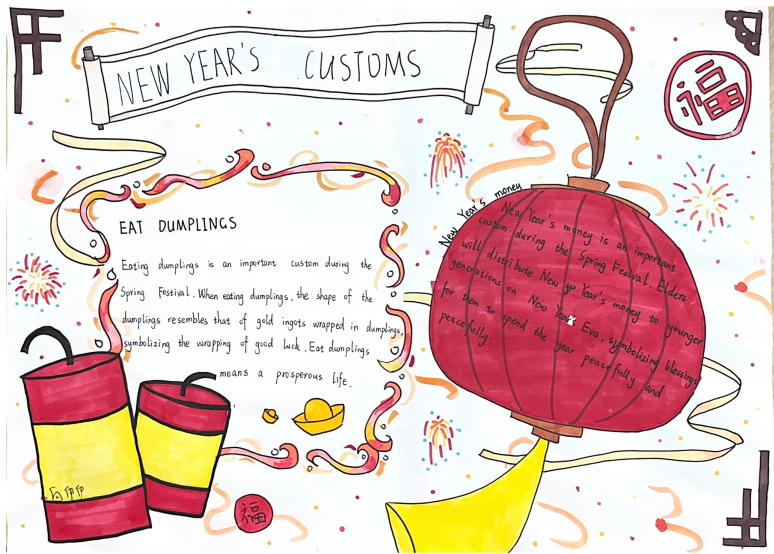 NEW YEAR'S CUSTOMS
福
EAT DUMPLINGS
Eating dumplings is an important custom during the
Spring Festival. When eating dumplings, the shape of the
dumplings resembles that of gold ingots wrapped in dumplings,
symbolizing the wrapping of good luck. Eat dumplings
means a prosperous life.
New Year's money
New Year's money is an important
custom during the Spring Festival. Elders
will distribute New Year's money to younger
generations on New Year Eva. symbolizing blessings
for them to spend the year peacefully and
peacefully.
福